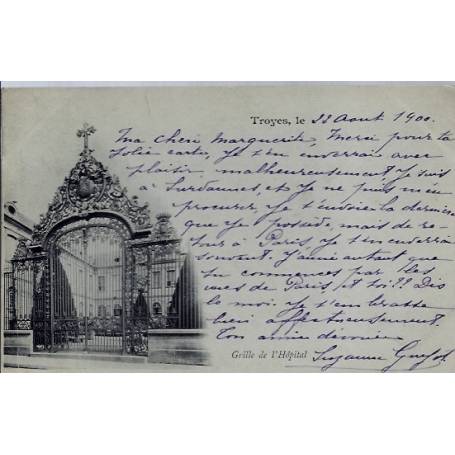 Troyes, le 22 Aout 1900.
Ma cheri Marguerite, Merci pour ta
Jolie carte, Je t'en enverrai avec
plaisir, malheureusement Je suis
à et Je ne puis m'en
procurer, Je t'envoie la dernière
que Je possède, mais de re-
tour à Paris, Je t'en enverrai
souvent. J'aime autant que
tu commences par les
vues de Paris, et toi?? Dis
le moi. Je t'embrasse
bien affectueusement.
Ton amie dévouée
Suzanne
Grille de l'Hôpital